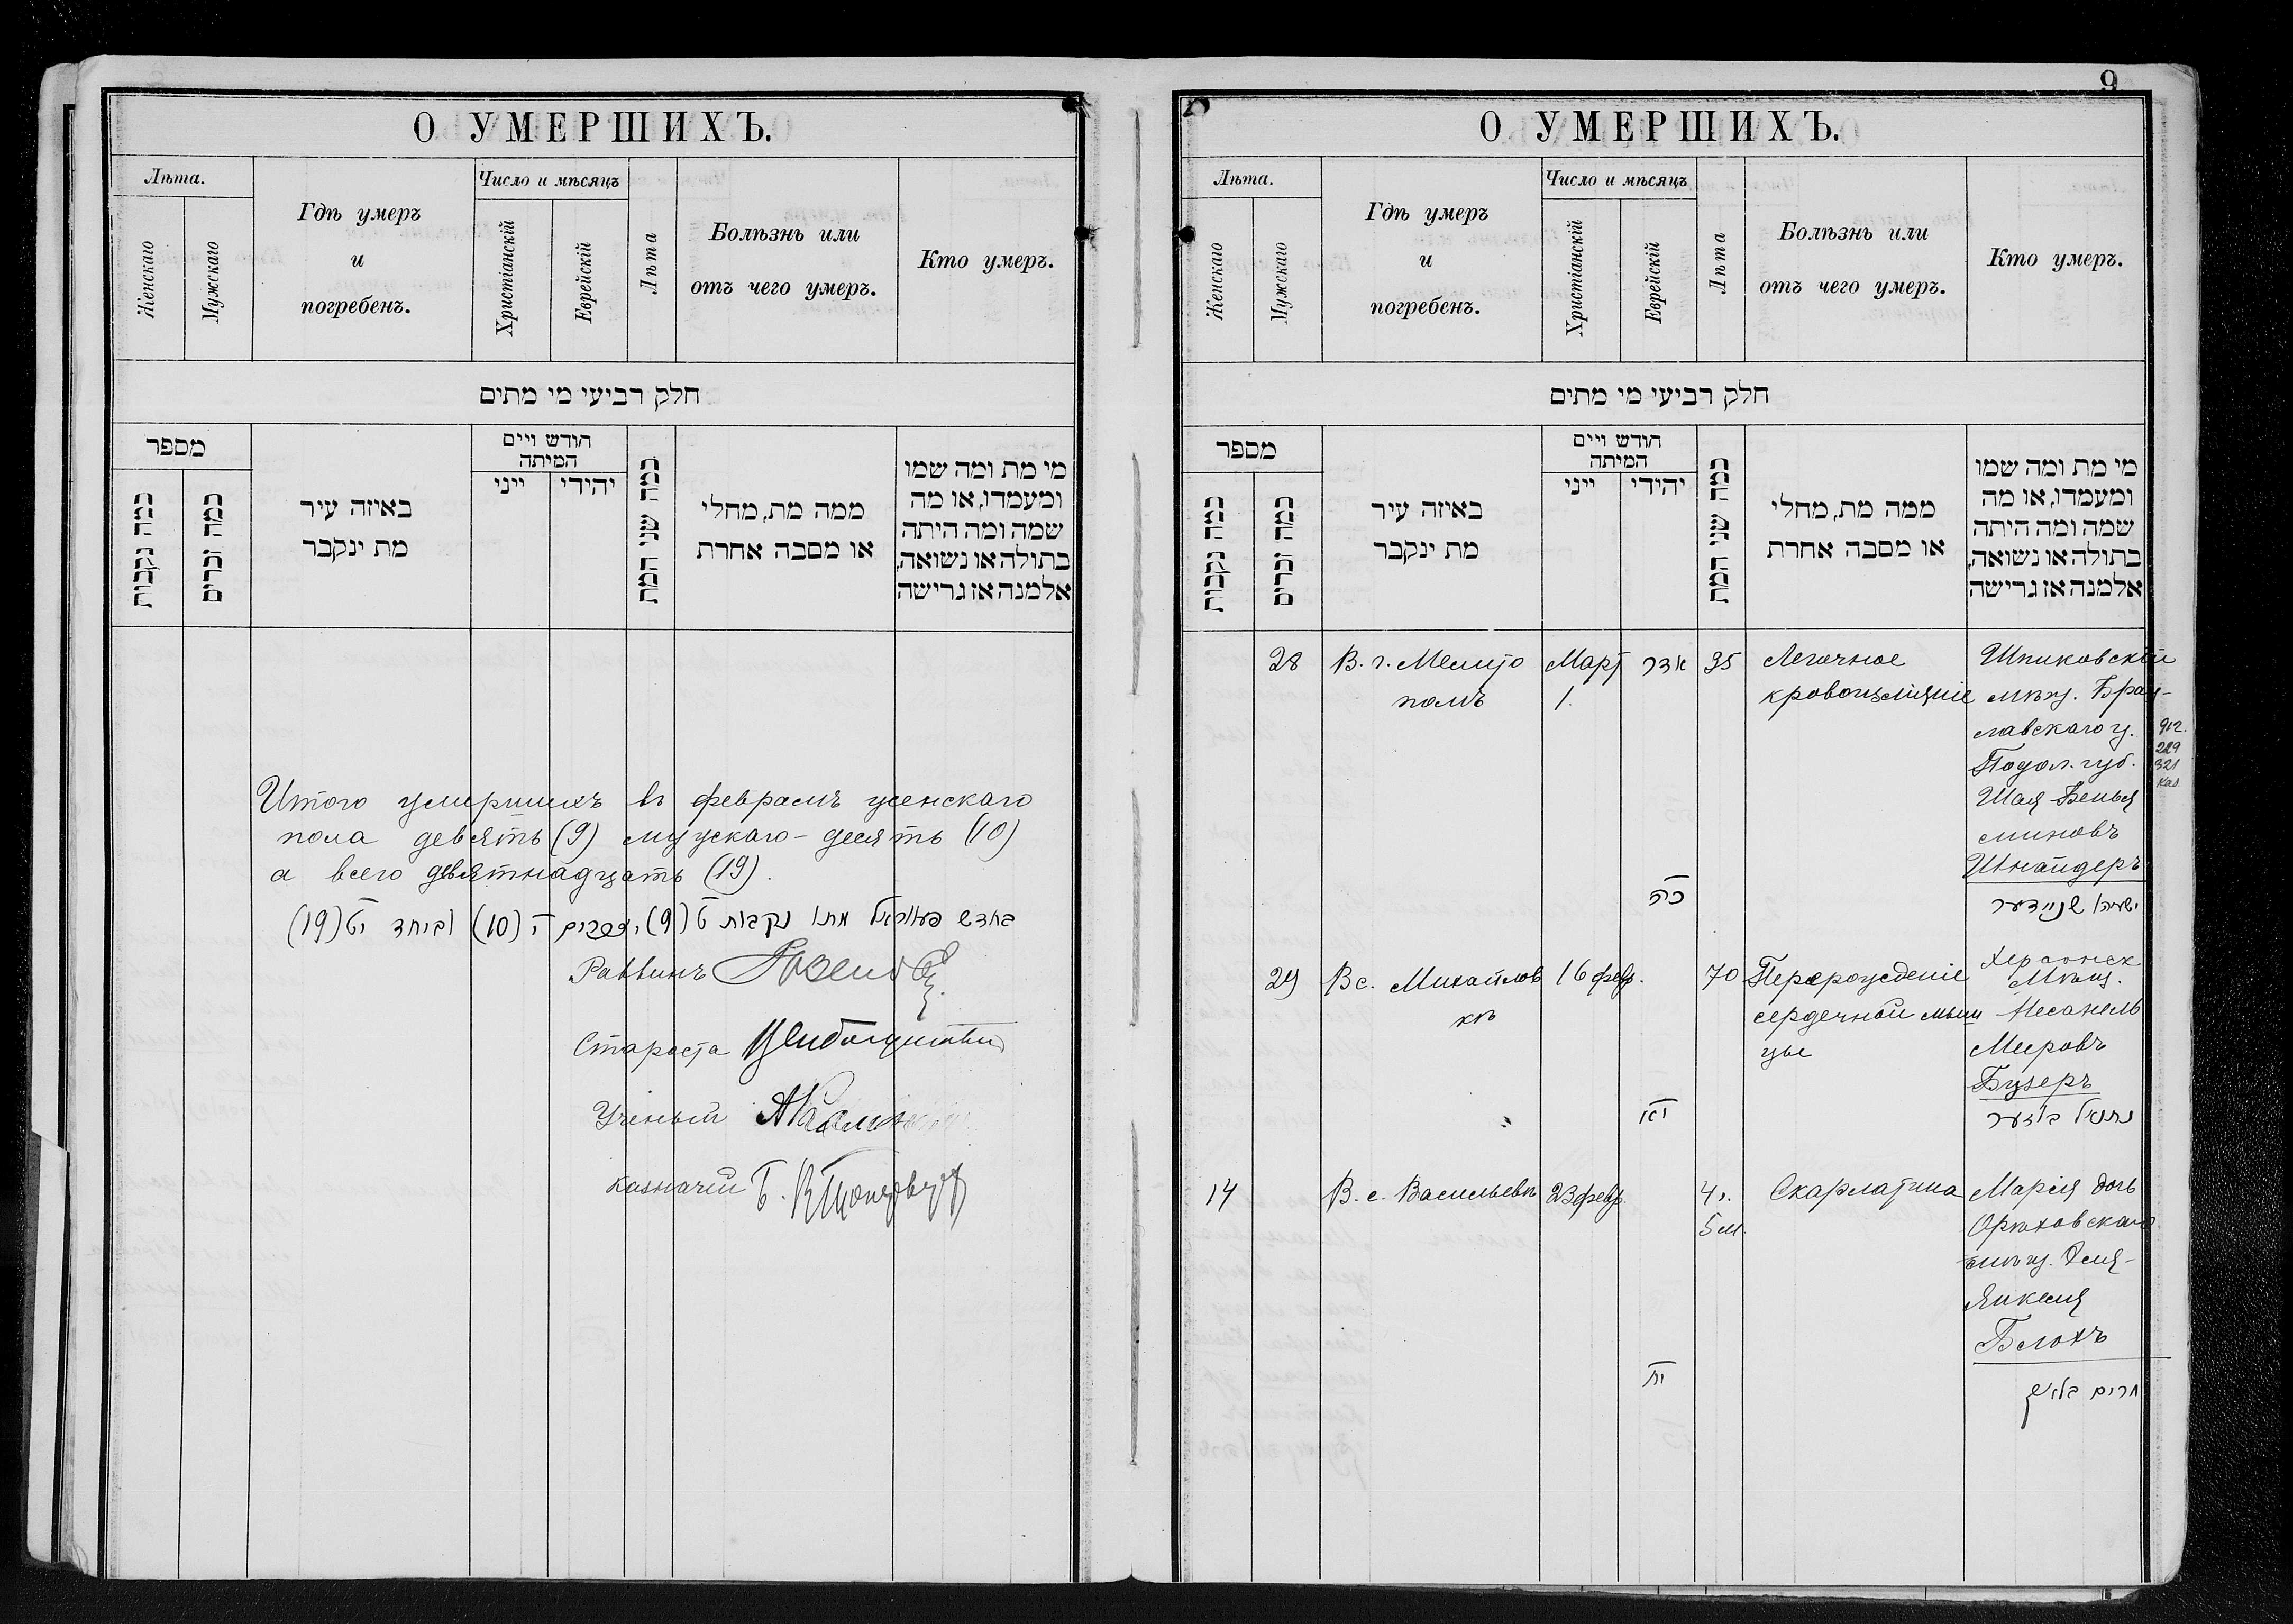 О УМЕРШИХЪ.
Лѣта.
Женскаго
Мужскаго
Гдѣ умеръ
и
погребенъ.
Число и мѣсяцъ
Христіанскій
Еврейскій
Лѣта
Болѣзнь или
отъ чего умеръ.
Кто умеръ.
חלק רביעי מי מתים
מספר
כמה נקבות
כמה זכרים
באיזה עיר
מת ינקבר
חודש ויים
המיתה
ייני
יהידי
כמה שני המת
ממה מת, מחלי
או מסבה אחרת
מי מת ומה שמו
ומעמדו, או מה
שמה ומה היתה
בתולה או נשואה,
אלמנה אז גרישה
Итого умершихъ въ февралѣ женскаго
пола девять (9) мужскаго - десять (10)
а всего девятнадцать (19).
בחדש פעווראל מתו נקבות ט (9), זכרים י (10) וביחד יט (19)
Раввинъ
Староста
Ученый
Казначей
9
О УМЕРШИХЪ.
Лѣта.
Женскаго
Мужскаго
Гдѣ умеръ
и
погребенъ.
Число и мѣсяцъ
Христіанскій
Еврейскій
Лѣта
Болѣзнь или
отъ чего умеръ.
Кто умеръ.
חלק רביעי מי מתים
מספר
כמה נקבות
כמה זכרים
באיזה עיר
מת ינקבר
חודש ויים
המיתה
ייני
יהידי
כמה שני המת
ממה מת, מחלי
או מסבה אחרת
מי מת ומה שמו
ומעמדו, או מה
שמה ומה היתה
בתולה או נשואה,
אלמנה אז גרישה
28
В. г. Мелито
полѣ
Март
1.
אדר
כה
35
Легочное
кровоизліяніе
Шпиковскій
мѣщ. Брац-
лавскаго у.
Подол. губ.
Шая Бенья
миновъ
Шнайдеръ
ישעיהו שניידער
229
321
29
В с. Михайлов
кѣ
16 февр.
יא
70
Перерожденіе
сердечной мыш
цы
Херсонск
Мѣщ.
Несанель
Мееровъ
Бузеръ
נתנאל בוזער
14
В. с. Васильевкѣ
23 февр.
יח
4 г.
5 м.
Скарлатина
Марія дочь
Орѣховскаго
мѣщ.
Янкеля
Блохъ
מרים בלאך